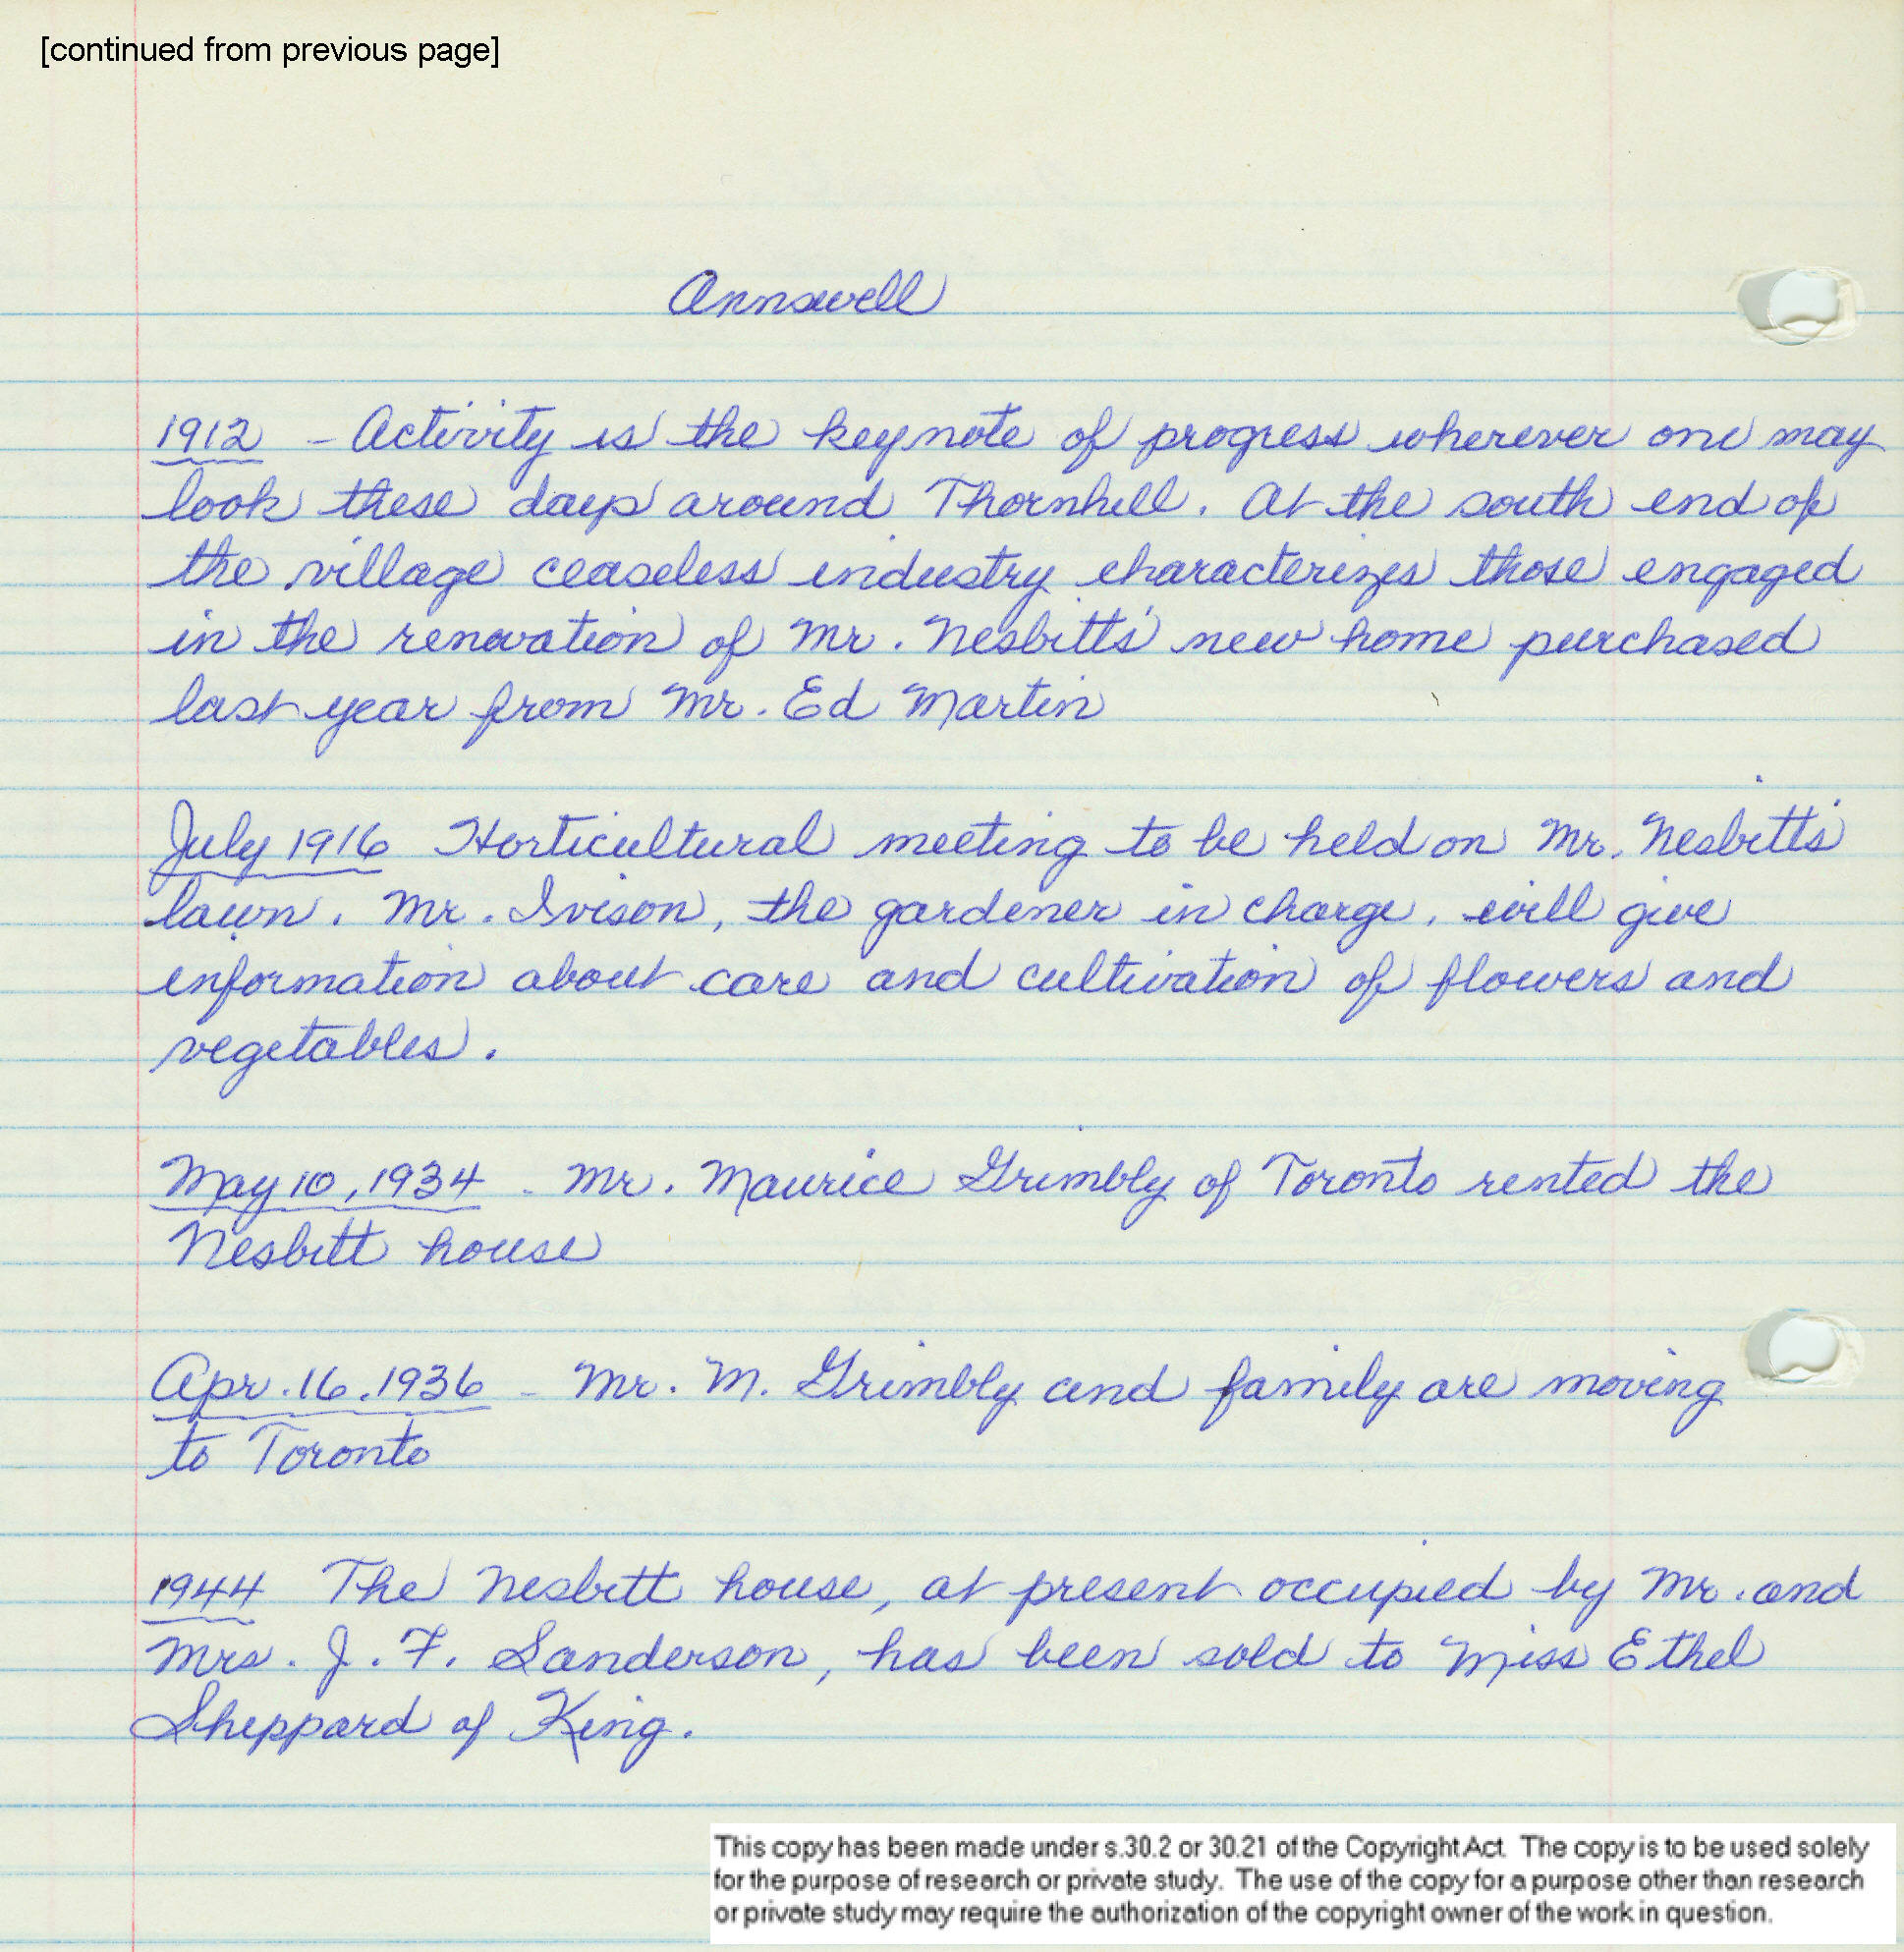 [continued from previous page]
Annswell
1912 - Activity is the keynote of progress wherever one may
look these days around Thornhill. At the south end of
the village ceaseless industry characterizes those engaged
in the renovation of Mr. Nesbitt's new home purchased
last year from Mr. Ed Martin
July 1916 Horticultural meeting to be held on Mr. Nesbitt's
lawn. Mr. Ivison, the gardener in charge, will give
information about care and cultivation of flowers and
vegetables.
May 10, 1934 - Mr. Maurice Grimbly of Toronto rented the
Nesbitt house
Apr. 16, 1936 - Mr. M. Grimbly and family are moving
to Toronto
1944 The Nesbitt house, at present occupied by Mr. and
Mrs. J. F. Sanderson, has been sold to Miss Ethel
Sheppard of King.
This copy has been made under s.30.2 or 30.21 of the Copyright Act. The copy is to be used solely
for the purpose of research or private study. The use of the copy for a purpose other than research
or private study may require the authorization of the copyright owner of the work in question.